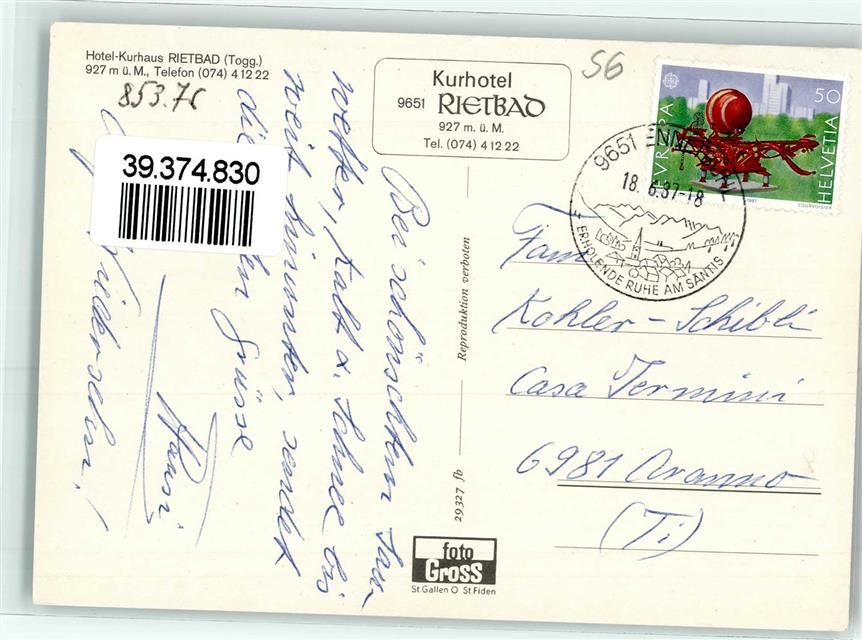 Hotel-Kurhaus RIETBAD (Togg.)
927 m ü. M., Telefon (074) 4 12 22
853.76
39.374.830
Kurhotel
9651 RIETBAD
927 m. ü. M.
Tel. (074) 4 12 22
56
EUROPA
50
HELVETIA
1987
COURVOISIER
9651 ENNET
18.6.87-18
ERHOLENDE RUHE AM SÄNTIS
Bei schönschtem Sau-
wetter, kalt u. Schnee bis
weit hinunter, sendet
Grüsse
Wiedersehn!
Reproduktion verboten
29327 fb
foto
Gross
St. Gallen O St. Fiden
Fam.
Kohler-Schibli
Casa Termini
6981 Aranno
(Ti)